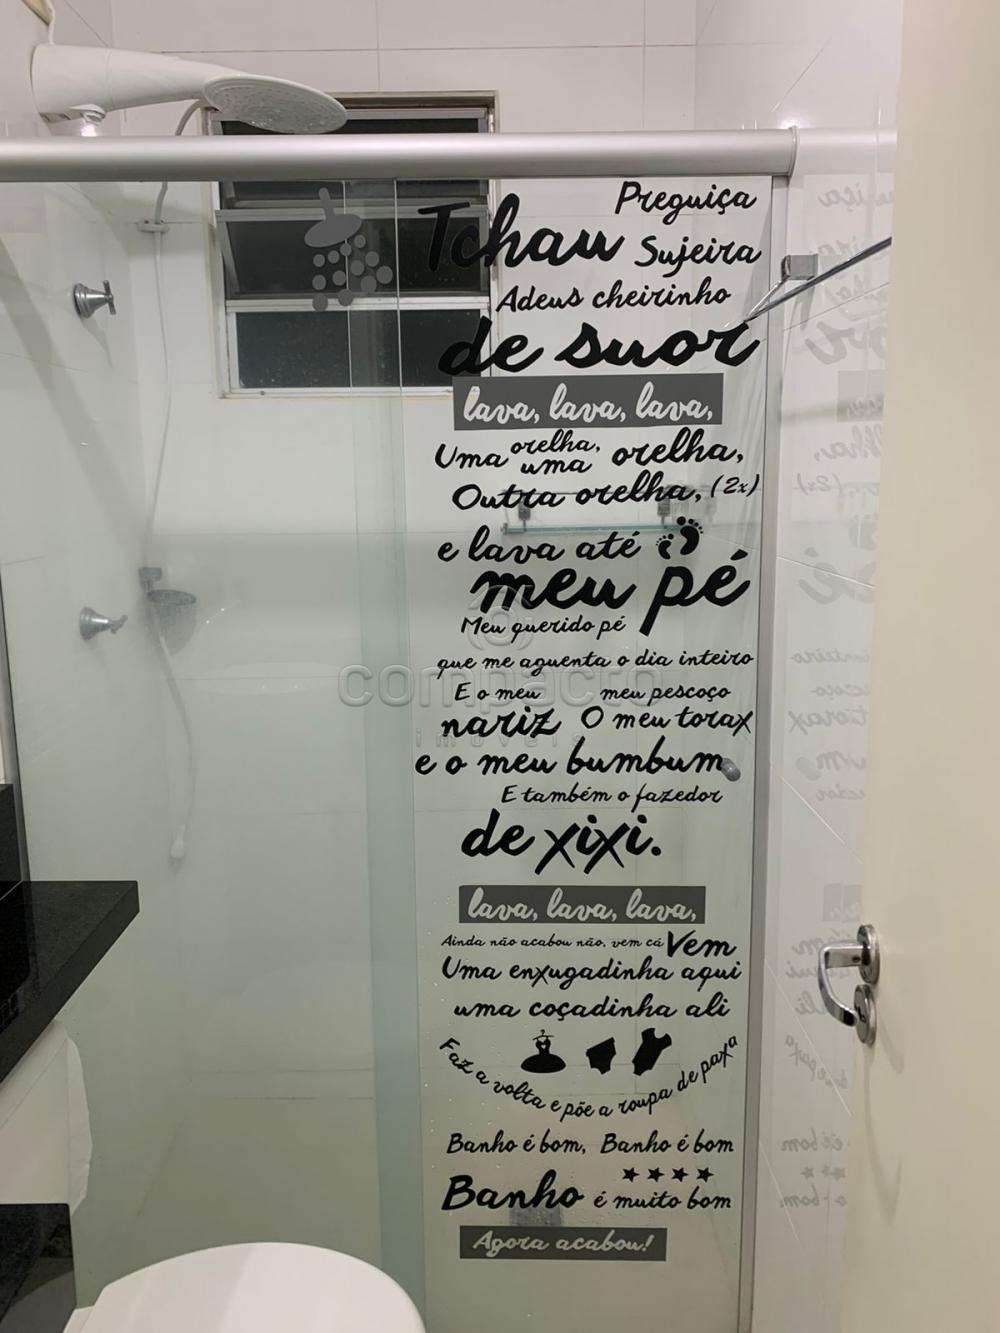 Tchau Preguiça
Sujeira
Adeus cheirinho
de suor
lava, lava, lava,
Uma orelha, uma orelha,
Outra orelha, (2x)
e lava até
meu pé
Meu querido pé
que me aguenta o dia inteiro
E o meu nariz meu pescoço
O meu torax
e o meu bumbum
E também o fazedor
de xixi.
lava, lava, lava,
Ainda não acabou não, vem cá Vem
Uma enxugadinha aqui
uma coçadinha ali
Faz a volta e põe a roupa de paxa
Banho é bom, Banho é bom
Banho é muito bom
Agora acabou!
compacto
imóveis